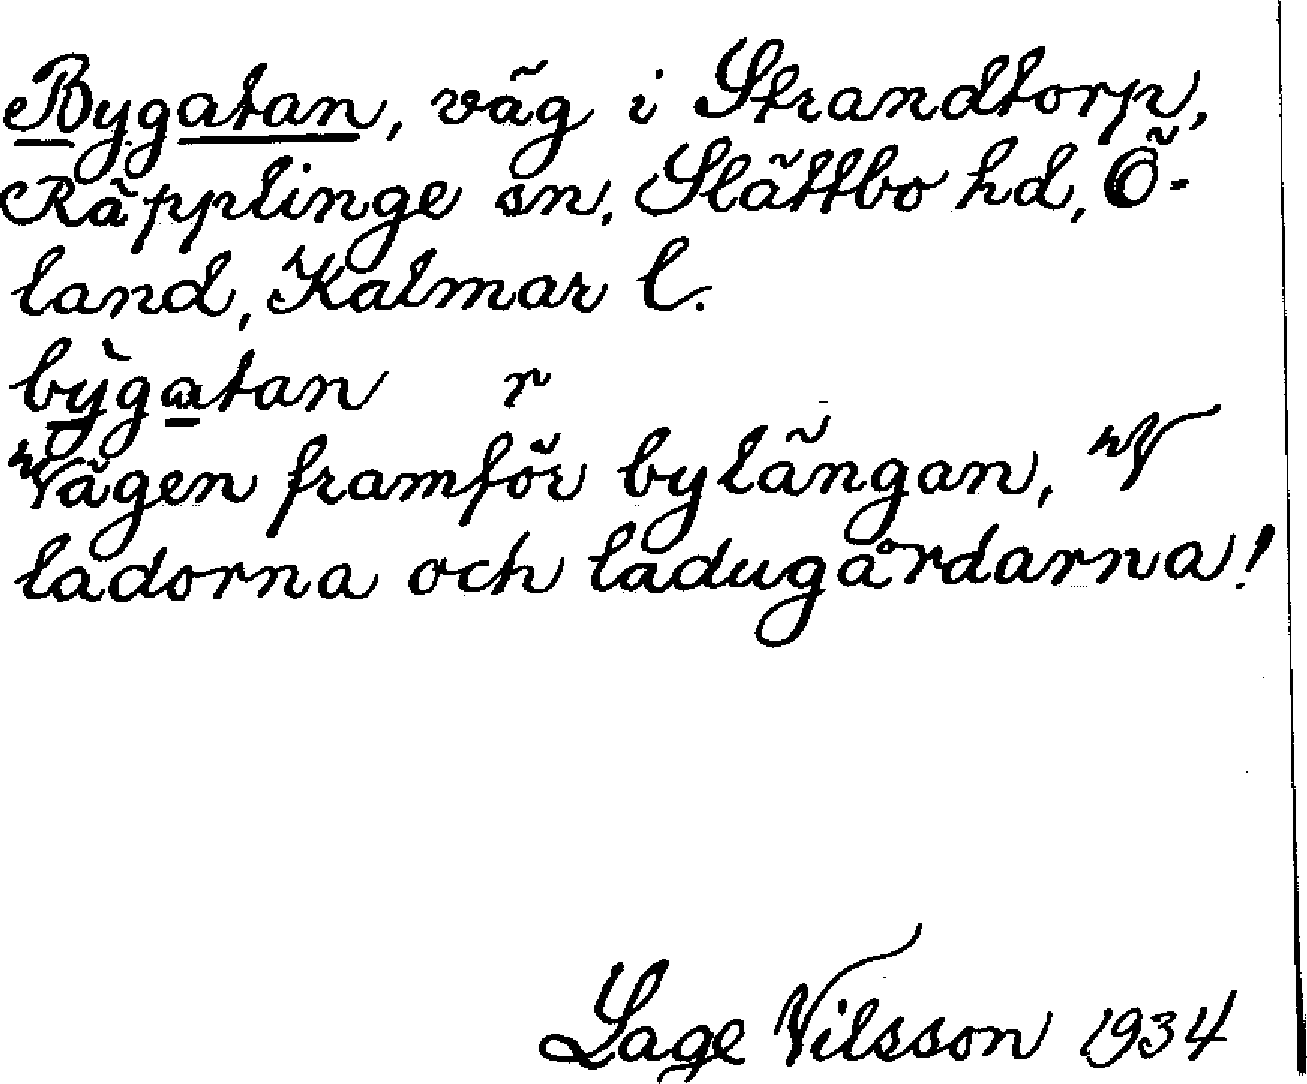 Bygatan, väg i Strandtorp,
Räpplinge sn, Slättbo hd, Ö-
land, Kalmar l.
by̍gatan r
Vägen framför bylängan, V
ladorna och ladugårdarna!
Lage Nilsson 1934